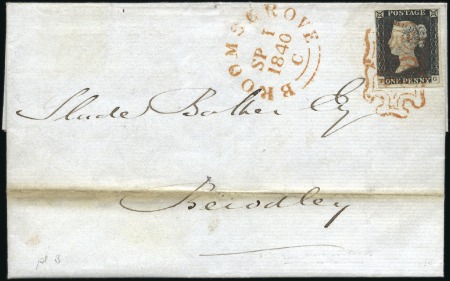 BROOMSGROVE
SP 1
1840
C
POSTAGE
ONE PENNY
Slade Baker Esq
Bewdley
pl 8